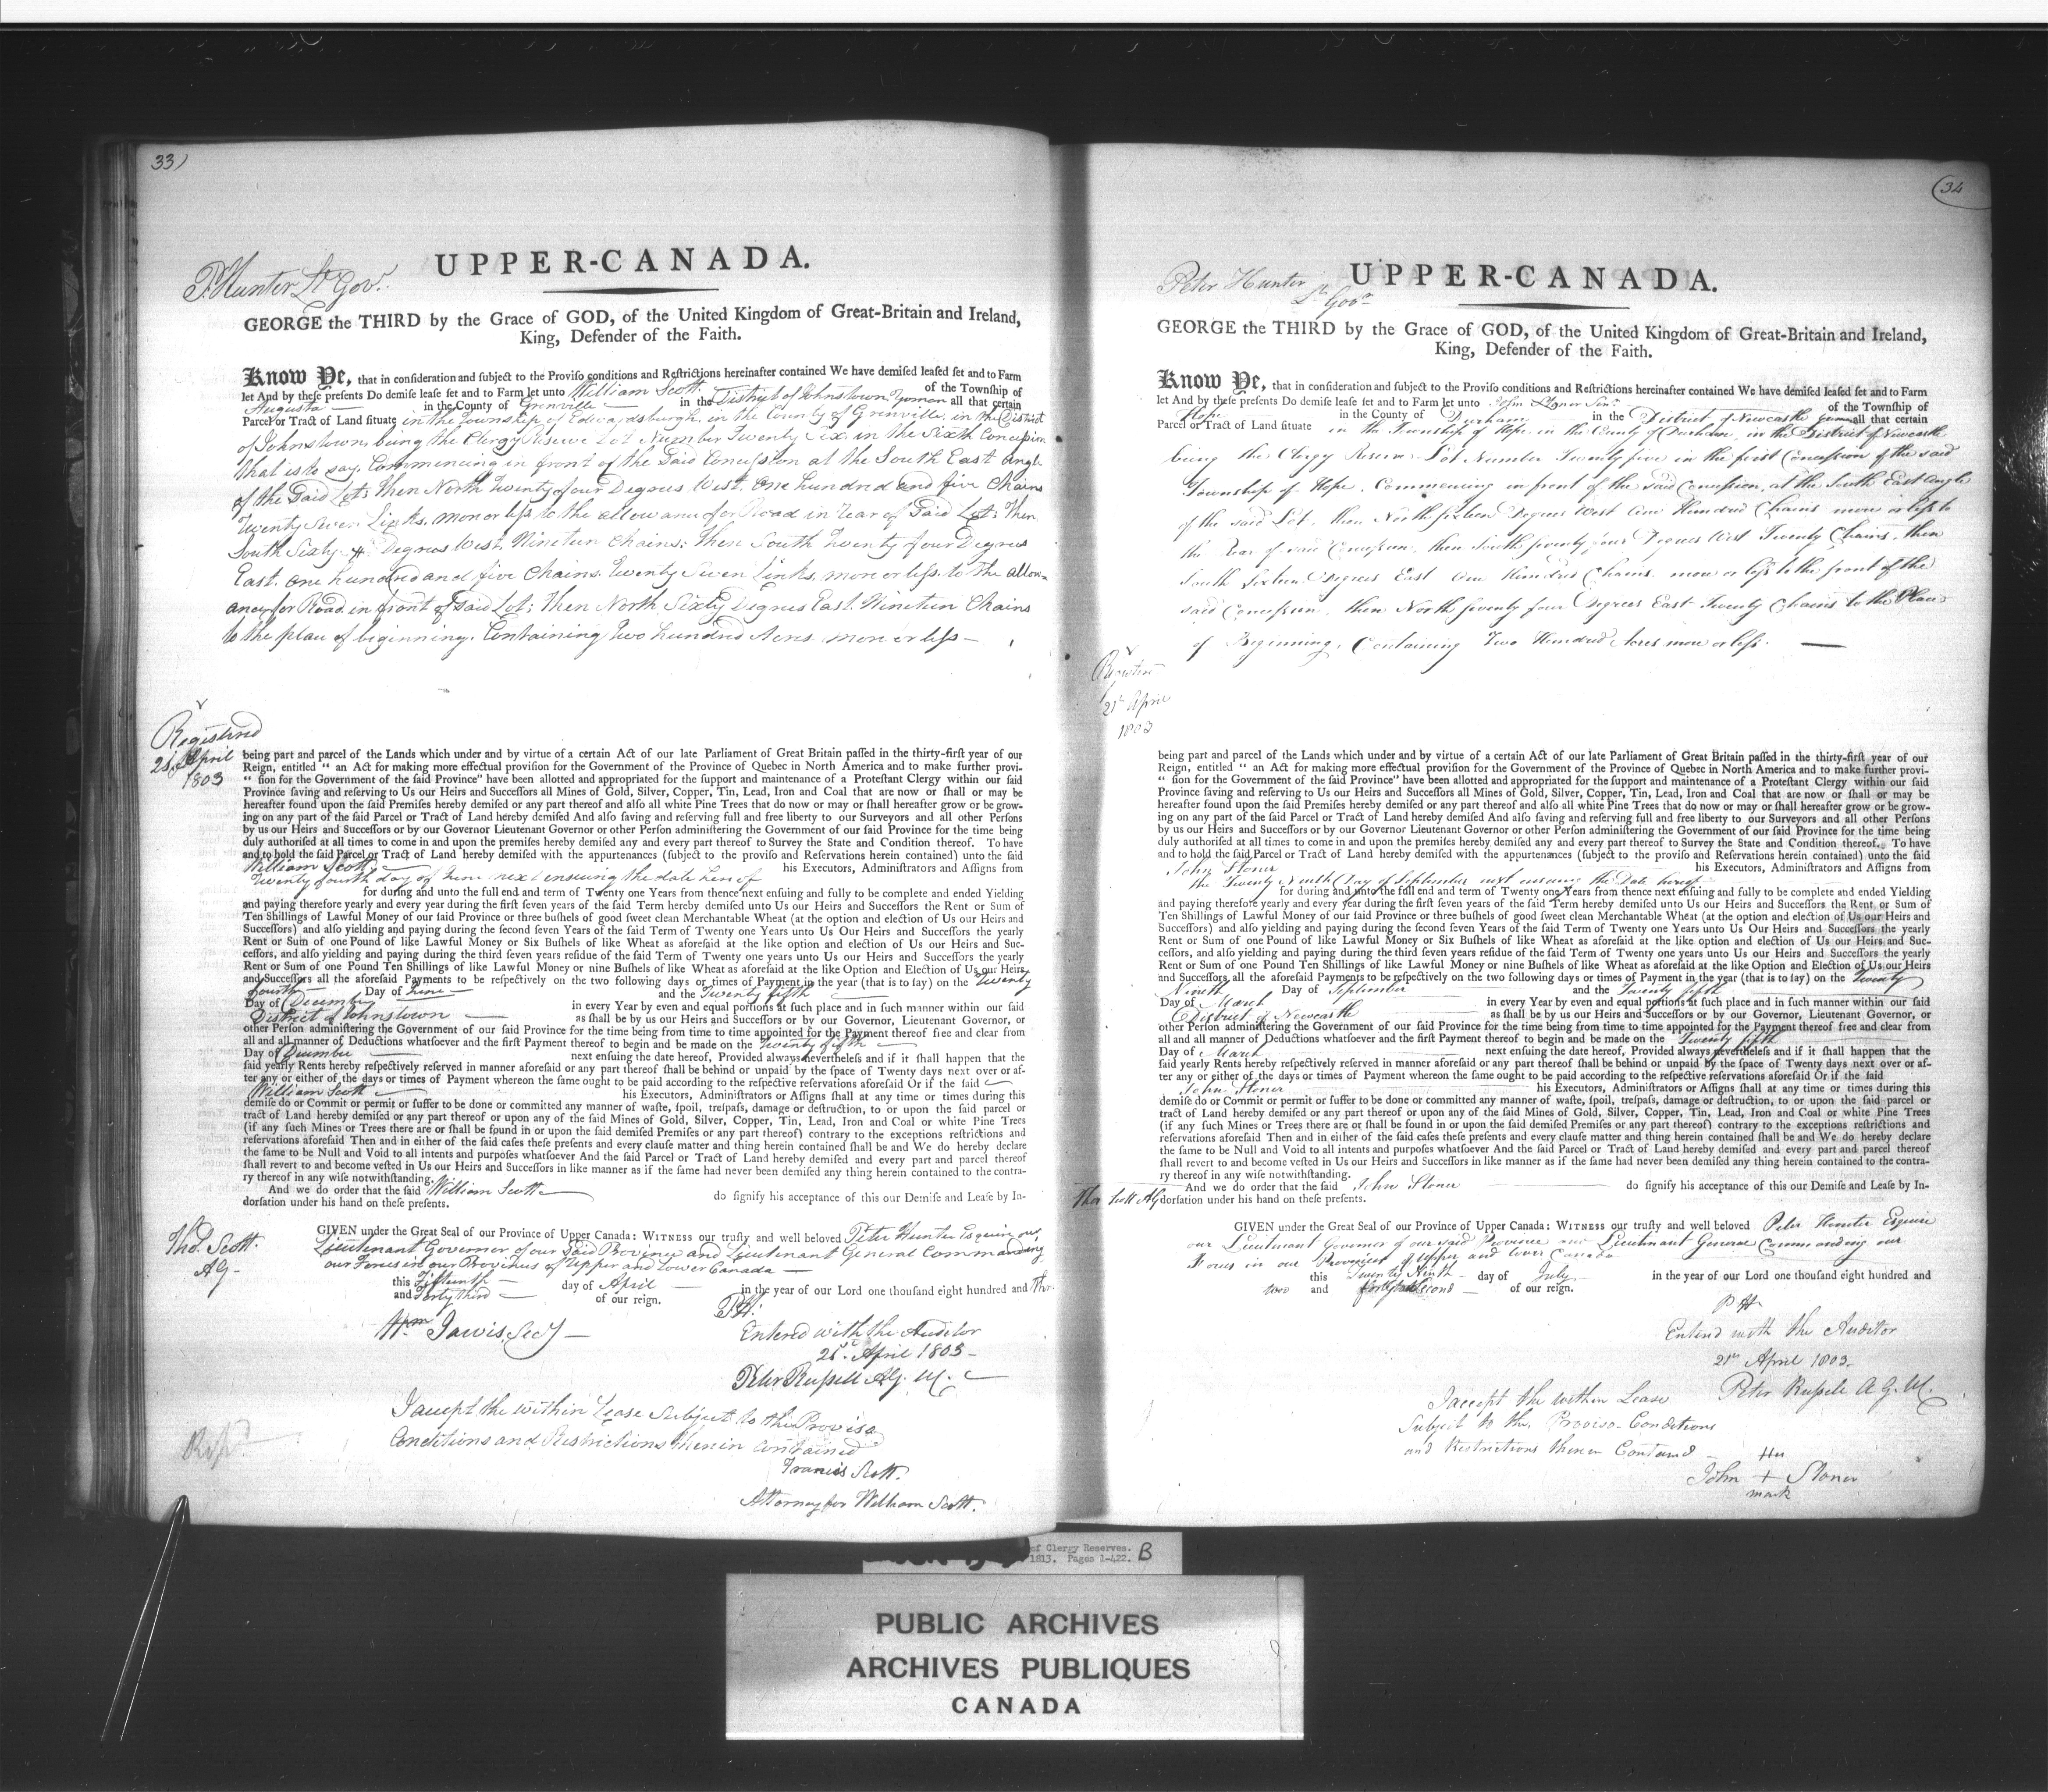 33)
UPPER-CANADA.
P. Hunter Lt Govr.
GEORGE the THIRD by the Grace of GOD, of the United Kingdom of Great-Britain and Ireland,
King, Defender of the Faith.
Know Ye, that in consideration and subject to the Proviso conditions and Restrictions hereinafter contained We have demised leased set and to Farm
let And by these presents Do demise lease set and to Farm let unto William Scott of the Township of
Augusta in the County of Grenville in the District of Johnstown Yeoman all that certain
Parcel or Tract of Land situate in the Township of Edwardsburgh, in the County of Grenville, in the District
of Johnstown, being the Clergy Reserve Lot Number Twenty Six in the Sixth Concession
that is to say, Commencing in front of the Said Concession at the South East Angle
of the Said Lot; Then North Twenty four Degrees West, One hundred and five Chains
Twenty Seven Links, more or less to the allowance for Road in rear of Said Lot; Then
South Sixty Degrees West, Nineteen Chains; Then South Twenty four Degrees
East, One hundred and five Chains, Twenty Seven Links, more or less, to the allow=
ance for Road in front of Said Lot; Then North Sixty Degrees East, Nineteen Chains
to the place of beginning, Containing Two hundred Acres more or less—
Registered
21st April
1803
being part and parcel of the Lands which under and by virtue of a certain Act of our late Parliament of Great Britain passed in the thirty-first year of our
Reign, entitled “ an Act for making more effectual provision for the Government of the Province of Quebec in North America and to make further provi-
“ sion for the Government of the said Province” have been allotted and appropriated for the support and maintenance of a Protestant Clergy within our said
Province saving and reserving to Us our Heirs and Successors all Mines of Gold, Silver, Copper, Tin, Lead, Iron and Coal that are now or shall or may be
hereafter found upon the said Premises hereby demised or any part thereof and also all white Pine Trees that do now or may or shall hereafter grow or be grow-
ing on any part of the said Parcel or Tract of Land hereby demised And also saving and reserving full and free liberty to our Surveyors and all other Persons
by us our Heirs and Successors or by our Governor Lieutenant Governor or other Person administering the Government of our said Province for the time being
duly authorised at all times to come in and upon the premises hereby demised any and every part thereof to Survey the State and Condition thereof. To have
and to hold the said Parcel or Tract of Land hereby demised with the appurtenances (subject to the proviso and Reservations herein contained) unto the said
William Scott his Executors, Administrators and Assigns from
Twenty fourth day of June next ensuing the date hereof
for during and unto the full end and term of Twenty one Years from thence next ensuing and fully to be complete and ended Yielding
and paying therefore yearly and every year during the first seven years of the said Term hereby demised unto Us our Heirs and Successors the Rent or Sum of
Ten Shillings of Lawful Money of our said Province or three bushels of good sweet clean Merchantable Wheat (at the option and election of Us our Heirs and
Successors) and also yielding and paying during the second seven Years of the said Term of Twenty one Years unto Us Our Heirs and Successors the yearly
Rent or Sum of one Pound of like Lawful Money or Six Bushels of like Wheat as aforesaid at the like option and election of Us our Heirs and Suc-
cessors, and also yielding and paying during the third seven years residue of the said Term of Twenty one years unto Us our Heirs and Successors the yearly
Rent or Sum of one Pound Ten Shillings of like Lawful Money or nine Bushels of like Wheat as aforesaid at the like Option and Election of Us our Heirs
and Successors all the aforesaid Payments to be respectively on the two following days or times of Payment in the year (that is to say) on the Twenty
fourth Day of June and the Twenty fifth
Day of December in every Year by even and equal portions at such place and in such manner within our said
District of Johnstown as shall be by us our Heirs and Successors or by our Governor, Lieutenant Governor, or
other Person administering the Government of our said Province for the time being from time to time appointed for the Payment thereof free and clear from
all and all manner of Deductions whatsoever and the first Payment thereof to begin and be made on the Twenty fifth
Day of December next ensuing the date hereof, Provided always nevertheless and if it shall happen that the
said yearly Rents hereby respectively reserved in manner aforesaid or any part thereof shall be behind or unpaid by the space of Twenty days next over or af-
ter any or either of the days or times of Payment whereon the same ought to be paid according to the respective reservations aforesaid Or if the said
William Scott his Executors, Administrators or Assigns shall at any time or times during this
demise do or Commit or permit or suffer to be done or committed any manner of waste, spoil, trespass, damage or destruction, to or upon the said parcel or
tract of Land hereby demised or any part thereof or upon any of the said Mines of Gold, Silver, Copper, Tin, Lead, Iron and Coal or white Pine Trees
(if any such Mines or Trees there are or shall be found in or upon the said demised Premises or any part thereof) contrary to the exceptions restrictions and
reservations aforesaid Then and in either of the said cases these presents and every clause matter and thing herein contained shall be and We do hereby declare
the same to be Null and Void to all intents and purposes whatsoever And the said Parcel or Tract of Land hereby demised and every part and parcel thereof
shall revert to and become vested in Us our Heirs and Successors in like manner as if the same had never been demised any thing herein contained to the contra-
ry thereof in any wise notwithstanding.
And we do order that the said William Scott do signify his acceptance of this our Demise and Lease by In-
dorsation under his hand on these presents.
Tho. Scott.
AG
GIVEN under the Great Seal of our Province of Upper Canada: WITNESS our trusty and well beloved Peter Hunter Esquire our
Lieutenant Governor of our Said Province and Lieutenant General Commanding
our Forces in our Provinces of Upper and Lower Canada
this Fifteenth day of April in the year of our Lord one thousand eight hundred and three
and Forty third of our reign.
P.H.
Wm Jarvis, Secy
Entered with the Auditor
21st April 1803
Peter Russell A.G. M.
I accept the within Lease Subject to the Proviso
Conditions and Restrictions therein contained
Francis Scott.
Attorney for William Scott.
(34
UPPER-CANADA.
Peter Hunter
Lt Govr
GEORGE the THIRD by the Grace of GOD, of the United Kingdom of Great-Britain and Ireland,
King, Defender of the Faith.
Know Ye, that in consideration and subject to the Proviso conditions and Restrictions hereinafter contained We have demised leased set and to Farm
let And by these presents Do demise lease set and to Farm let unto John Stoner Senr of the Township of
Hope in the County of Durham in the District of Newcastle Yeoman all that certain
Parcel or Tract of Land situate in the Township of Hope, in the County of Durham, in the District of Newcastle
being the Clergy Reserve Lot Number Twenty five in the first Concession of the said
Township of Hope, Commencing in front of the said Concession, at the South East angle
of the said Lot, then North sixteen Degrees West One Hundred Chains more or less to
the Rear of said Concession, then South seventy four Degrees West Twenty Chains, then
South Sixteen Degrees East One Hundred Chains more or less to the front of the
said Concession, then North seventy four Degrees East Twenty Chains to the Place
of Beginning, Containing Two Hundred Acres more or less.
Register
21st April
1803
being part and parcel of the Lands which under and by virtue of a certain Act of our late Parliament of Great Britain passed in the thirty-first year of our
Reign, entitled “ an Act for making more effectual provision for the Government of the Province of Quebec in North America and to make further provi-
“ sion for the Government of the said Province” have been allotted and appropriated for the support and maintenance of a Protestant Clergy within our said
Province saving and reserving to Us our Heirs and Successors all Mines of Gold, Silver, Copper, Tin, Lead, Iron and Coal that are now or shall or may be
hereafter found upon the said Premises hereby demised or any part thereof and also all white Pine Trees that do now or may or shall hereafter grow or be grow-
ing on any part of the said Parcel or Tract of Land hereby demised And also saving and reserving full and free liberty to our Surveyors and all other Persons
by us our Heirs and Successors or by our Governor Lieutenant Governor or other Person administering the Government of our said Province for the time being
duly authorised at all times to come in and upon the premises hereby demised any and every part thereof to Survey the State and Condition thereof. To have
and to hold the said Parcel or Tract of Land hereby demised with the appurtenances (subject to the proviso and Reservations herein contained) unto the said
John Stoner his Executors, Administrators and Assigns from
the Twenty Ninth Day of September next ensuing the Date hereof
for during and unto the full end and term of Twenty one Years from thence next ensuing and fully to be complete and ended Yielding
and paying therefore yearly and every year during the first seven years of the said Term hereby demised unto Us our Heirs and Successors the Rent or Sum of
Ten Shillings of Lawful Money of our said Province or three bushels of good sweet clean Merchantable Wheat (at the option and election of Us our Heirs and
Successors) and also yielding and paying during the second seven Years of the said Term of Twenty one Years unto Us Our Heirs and Successors the yearly
Rent or Sum of one Pound of like Lawful Money or Six Bushels of like Wheat as aforesaid at the like option and election of Us our Heirs and Suc-
cessors, and also yielding and paying during the third seven years residue of the said Term of Twenty one years unto Us our Heirs and Successors the yearly
Rent or Sum of one Pound Ten Shillings of like Lawful Money or nine Bushels of like Wheat as aforesaid at the like Option and Election of Us our Heirs
and Successors, all the aforesaid Payments to be respectively on the two following days or times of Payment in the year (that is to say) on the Twenty
Nineth Day of September and the Twenty fifth
Day of March in every Year by even and equal portions at such place and in such manner within our said
District of Newcastle as shall be by us our Heirs and Successors or by our Governor, Lieutenant Governor, or
other Person administering the Government of our said Province for the time being from time to time appointed for the Payment thereof free and clear from
all and all manner of Deductions whatsoever and the first Payment thereof to begin and be made on the Twenty fifth
Day of March next ensuing the date hereof, Provided always nevertheless and if it shall happen that the
said yearly Rents hereby respectively reserved in manner aforesaid or any part thereof shall be behind or unpaid by the space of Twenty days next over or af-
ter any or either of the days or times of Payment whereon the same ought to be paid according to the respective reservations aforesaid Or if the said
John Stoner his Executors, Administrators or Assigns shall at any time or times during this
demise do or Commit or permit or suffer to be done or committed any manner of waste, spoil, trespass, damage or destruction, to or upon the said parcel or
tract of Land hereby demised or any part thereof or upon any of the said Mines of Gold, Silver, Copper, Tin, Lead, Iron and Coal or white Pine Trees
(if any such Mines or Trees there are or shall be found in or upon the said demised Premises or any part thereof) contrary to the exceptions restrictions and
reservations aforesaid Then and in either of the said cases these presents and every clause matter and thing herein contained shall be and We do hereby declare
the same to be Null and Void to all intents and purposes whatsoever And the said Parcel or Tract of Land hereby demised and every part and parcel thereof
shall revert to and become vested in Us our Heirs and Successors in like manner as if the same had never been demised any thing herein contained to the contra-
ry thereof in any wise notwithstanding.
And we do order that the said John Stoner do signify his acceptance of this our Demise and Lease by In-
Thos Scott AG dorsation under his hand on these presents.
GIVEN under the Great Seal of our Province of Upper Canada: WITNESS our trusty and well beloved Peter Hunter Esquire
our Lieutenant Governor of our said Province and Lieutenant General Commanding our
Forces in our Provinces of Upper and Lower Canada
this Twenty Ninth day of July in the year of our Lord one thousand eight hundred and
two and forty Second of our reign.
P H
Entered with the Auditor
21st April 1803
Peter Russell A.G.M.
I accept the within Lease
Subject to the Proviso Conditions
and Restrictions therein Contained
His
John + Stoner
mark
of Clergy Reserves.
1813. Pages 1-422. B
PUBLIC ARCHIVES
ARCHIVES PUBLIQUES
CANADA